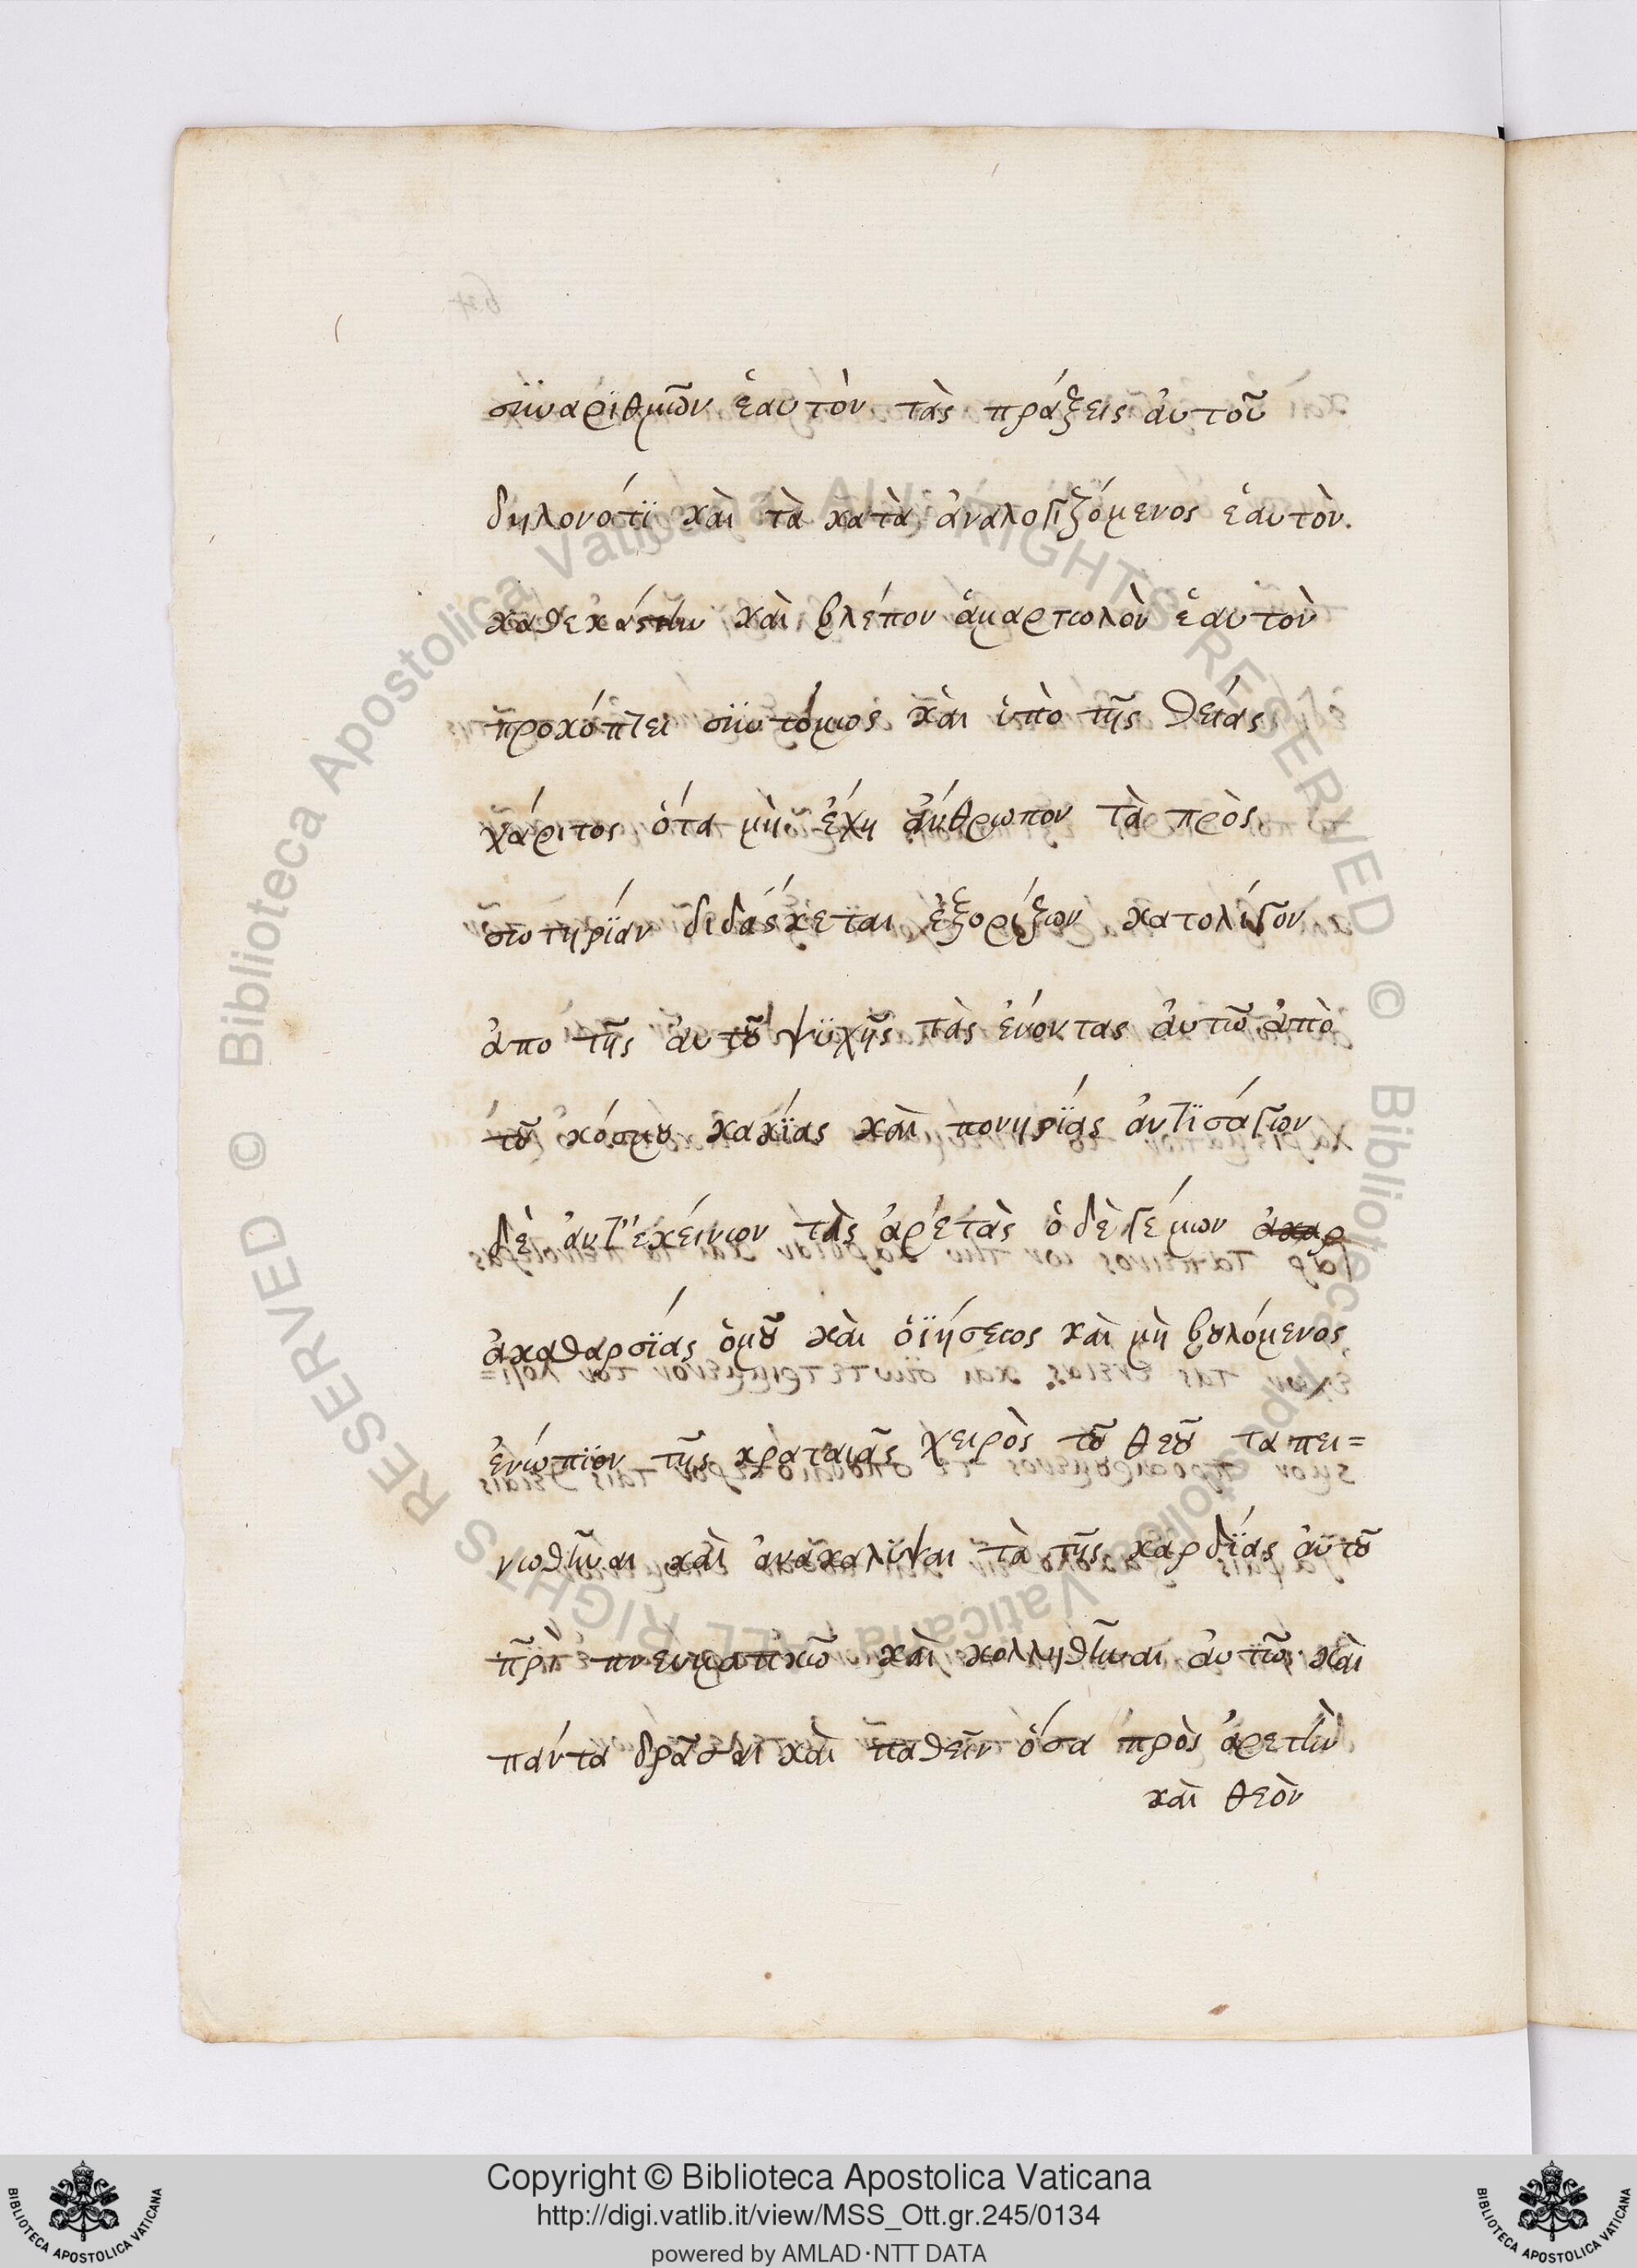 σϋναρϊθμῶν ἑαυτὸν τὰς πράξεις ἀυτοῦ
δηλονότϊ κὰι τὰ κατὰ ἀναλογιζόμενος ἑαυτὸν.
καθεκάστην κὰι βλέπον ἁμαρτωλὸν ἑαυτὸν
προκόπτει σϋντόμως κὰι ὑπὸ τῆς θείας
χάριτος ὅτα μὴ ἔχη ἄνθρωπον τὰ πρὸς
σωτηρΐαν διδάσκεται ἐξορίξων κατολίγον
ἀπο τῆς ἀυτοῦ ψϋχῆς τὰς ἐνόντας ἀυτῶ ἀπὸ
τοῦ κόσμου κακΐας κὰι πονηρΐας ἀντϊσάγων
δὲ ἀντ' ἐκείνων τὰς ἀρετὰς ὁ δὲ γέμων ἀκαρ
ἀκαθαρσΐας ὁμοῦ κὰι ὁϊήσεως κὰι μὴ βουλόμενος
ἐνώπϊον τῆς κραταιᾶς χειρὸς τοῦ θεοῦ ταπει=
νωθῆναι κὰι ἀνακαλΰψαι τὰ τῆς καρδΐας ἀυτοῦ
π̃ρὶ πνευματικῶ κὰι κολληθῆναι ἀυτῶ κὰι
πάντα δρᾶσαι κὰι παθεῖν ὅσα πρὸς ἀρετὴν
κὰι θεὸν
Copyright © Biblioteca Apostolica Vaticana
http://digi.vatlib.it/view/MSS_Ott.gr.245/0134
powered by AMLAD·NTT DATA